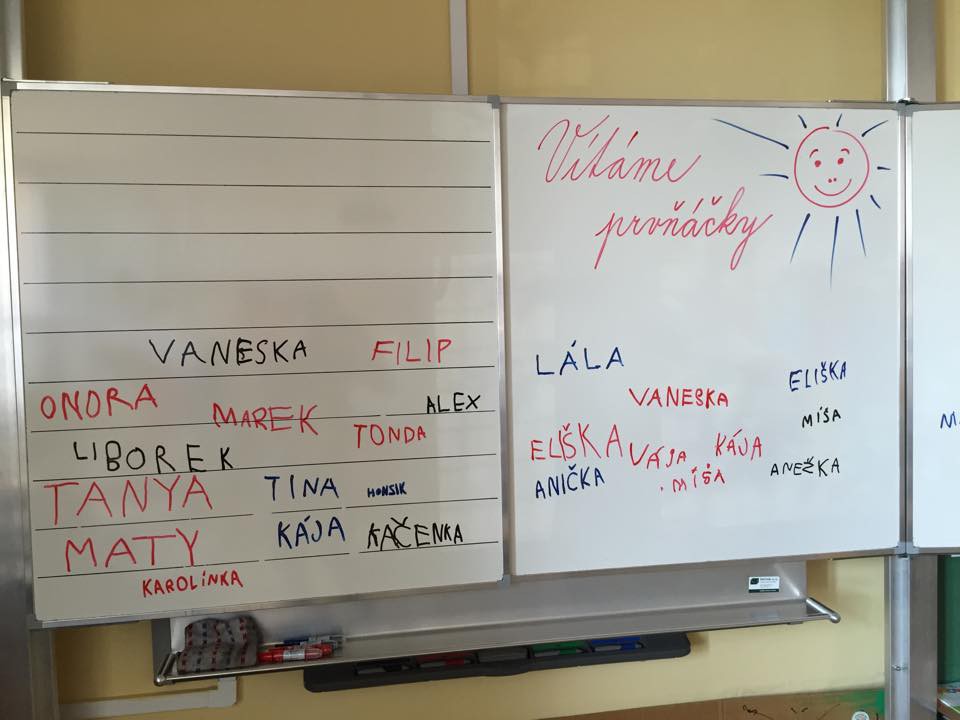 VANESKA FILIP
ONDRA MAREK ALEX
LIBOREK TONDA
TANYA TINA HONSIK
MATY KÁJA KAČENKA
KAROLÍNKA
Vítáme
prvňáčky
LÁLA ELIŠKA
VANESKA MÍŠA
ELIŠKA VÁJA KÁJA
ANIČKA MÍŠA ANEŽKA